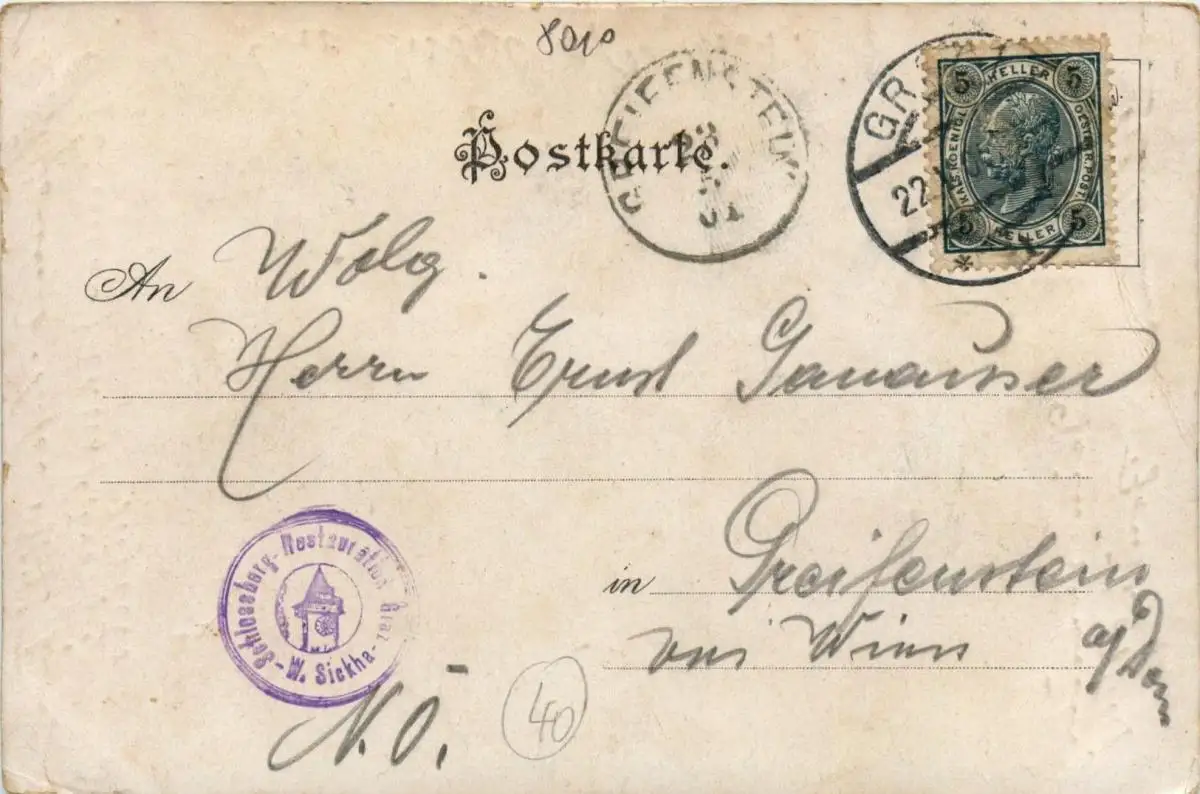 8010
Postkarte.
GREIFENSTEIN
01
GRAZ
22
5 HELLER 5
KAIS. KOENIGL. OESTERR. POST
5 HELLER 5
An Wolg.
Herrn Ernst
Schlossberg-Restauration Graz
- W. Sickha-
in Greifenstein
bei Wien a/ Don
N.Ö.
40